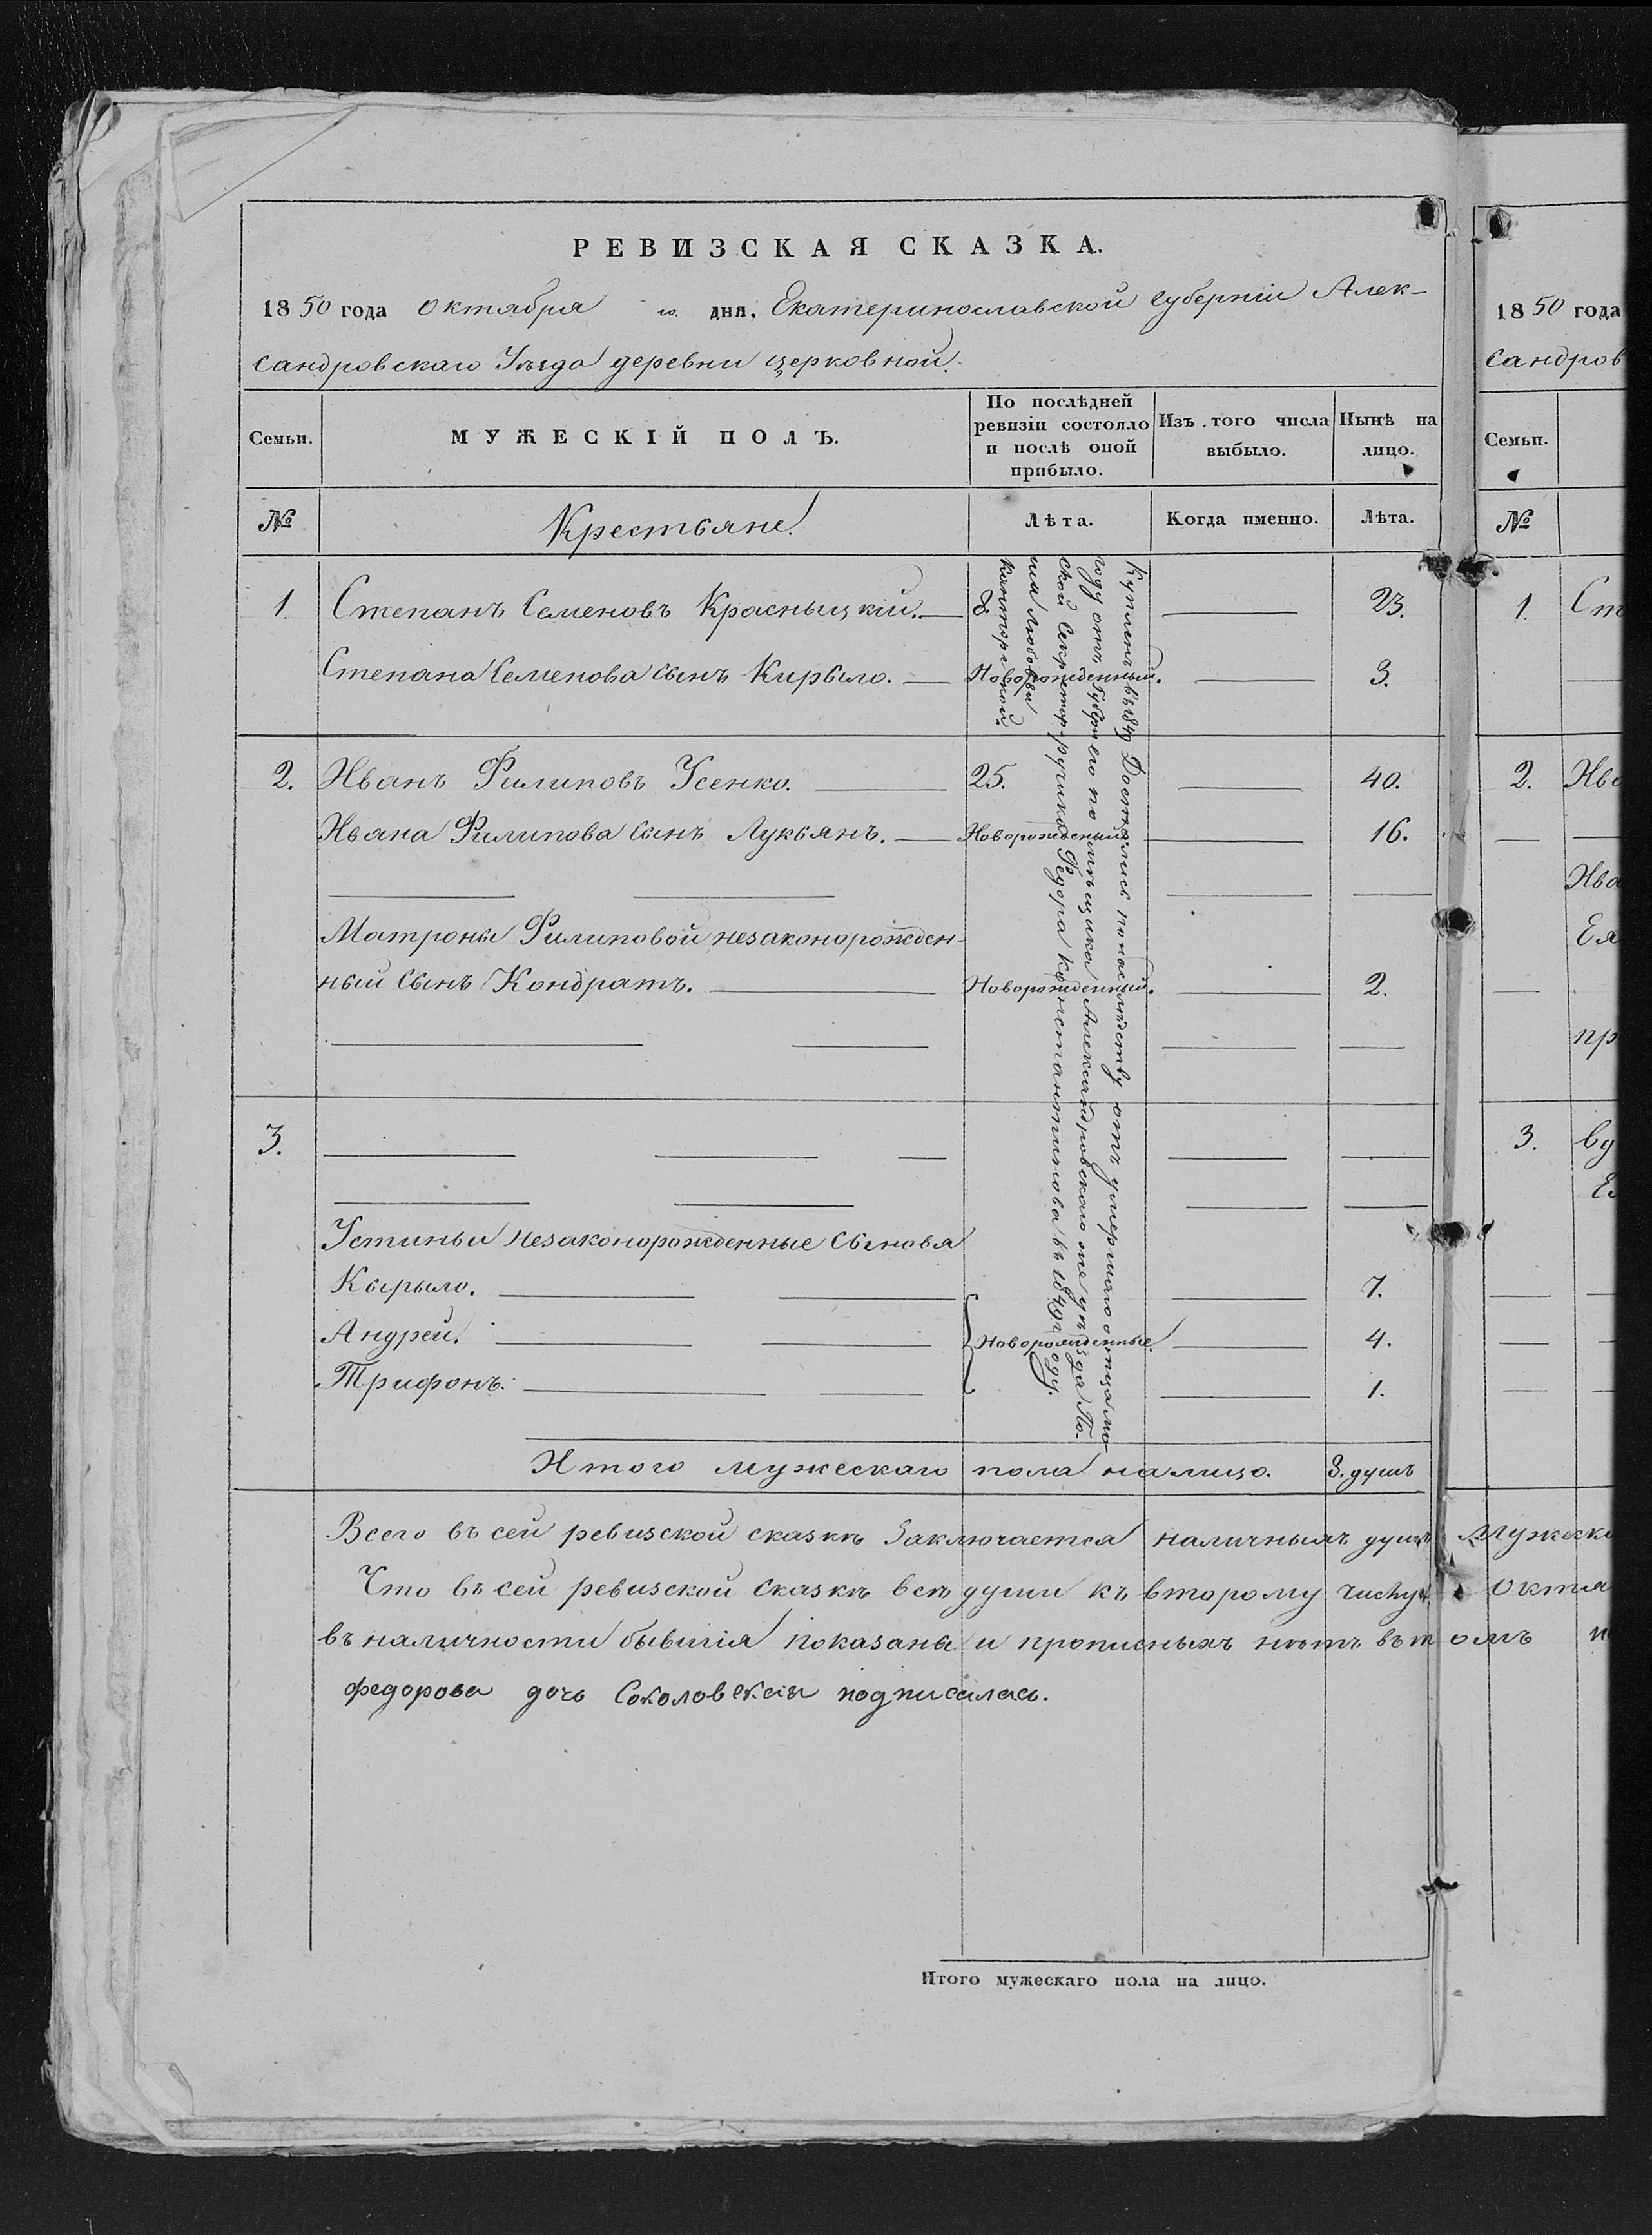 РЕВИЗСКАЯ СКАЗКА.
1850 года Октября го дня, Екатеринославской губерніи Алек-
сандровскаго Уѣзда деревни церковной.
Семьи.
МУЖЕСКІЙ ПОЛЪ.
По послѣдней
ревизіи состояло
и послѣ оной
прибыло.
Изъ того числа
выбыло.
Нынѣ на
лицо.
№
Крестьяне.
Лѣта.
Когда именно.
Лѣта.
1. Степанъ Семеновъ Красныцкій. 8 23.
Степана Семенова сынъ Кирыло. Новорожденный. 3.
2. Иванъ Филиповъ Усенко. 25. 40.
Ивана Филипова сынъ Лукьянъ. Новорожденный. 16.
Матроны Филиповой незаконорожден-
ный сынъ Кондратъ. Новорожденный. 2.
3.
Устиньи незаконорожденные сыновя
Кырыло. 7.
Андрей. Новорожденные. 4.
Трифонъ. 1.
Купленъ въ 1849
году отъ Губерн
ской Секретар
ши Любови
Конторской
Достались по наслѣдству отъ умершаго отца мо
его помѣщика Александровскаго же уѣзда По-
ручика Федора Константинова въ 1849 году.
Итого мужескаго пола налицо. 8. душъ
Всего въ сей ревизской сказкѣ Заключается наличныхъ душъ Мужеска
Что въ сей ревизской Сказкѣ всѣ души къ второму числу Октя
въ наличности бывшія показаны и прописныхъ нѣтъ въ томъ
федорова дочь Соколовская подписалась.
Итого мужескаго пола на лицо.
1850 года
сандров
Семьи.
№
1. Ст
2. Ива
Ива
Ея
пр
3. вд